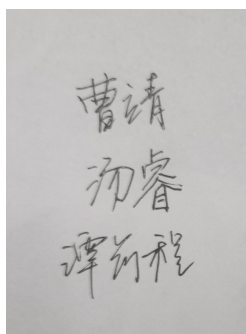 曹靖
汤睿
谭前程